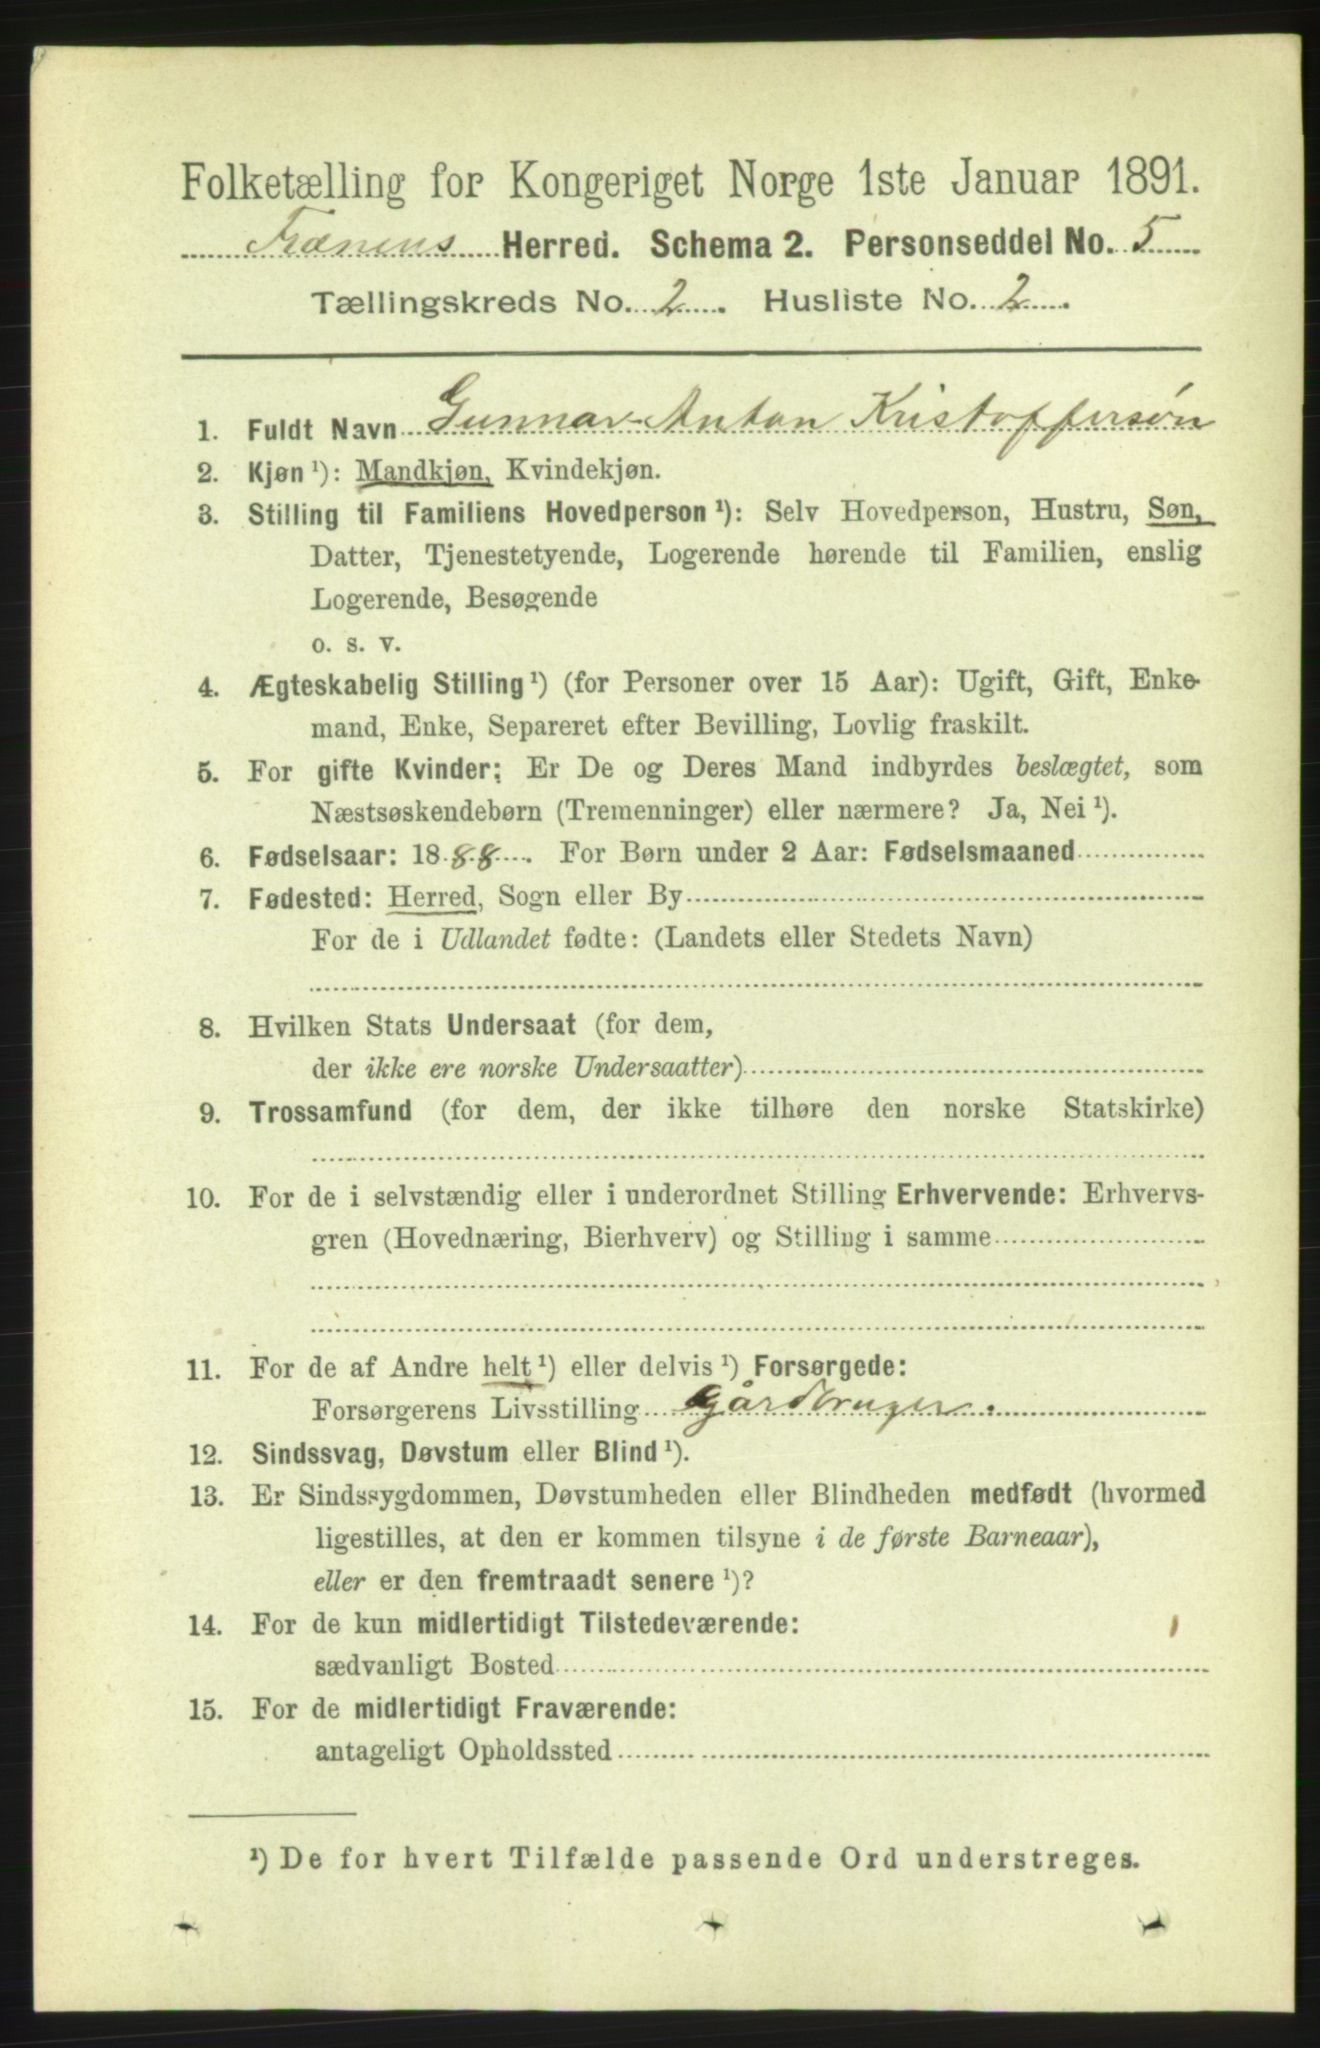 Folketælling for Kongeriget Norge 1ste Januar 1891.
Frænens Herred. Schema 2. Personseddel No. 5
Tællingskreds No. 2. Husliste No. 2.
1. Fuldt Navn Gunnar Anton Kristoffersøn
2. Kjøn ¹): Mandkjøn, Kvindekjøn.
3. Stilling til Familiens Hovedperson ¹): Selv Hovedperson, Hustru, Søn,
Datter, Tjenestetyende, Logerende hørende til Familien, enslig
Logerende, Besøgende
o. s. v.
4. Ægteskabelig Stilling ¹) (for Personer over 15 Aar): Ugift, Gift, Enke-
mand, Enke, Separeret efter Bevilling, Lovlig fraskilt.
5. For gifte Kvinder: Er De og Deres Mand indbyrdes beslægtet, som
Næstsøskendebørn (Tremenninger) eller nærmere? Ja, Nei ¹).
6. Fødselsaar: 1888. For Børn under 2 Aar: Fødselsmaaned
7. Fødested: Herred, Sogn eller By
For de i Udlandet fødte: (Landets eller Stedets Navn)
8. Hvilken Stats Undersaat (for dem,
der ikke ere norske Undersaatter)
9. Trossamfund (for dem, der ikke tilhøre den norske Statskirke)
10. For de i selvstændig eller i underordnet Stilling Erhvervende: Erhvervs-
gren (Hovednæring, Bierhverv) og Stilling i samme
11. For de af Andre helt ¹) eller delvis ¹) Forsørgede:
Forsørgerens Livsstilling Gårdbruger.
12. Sindssvag, Døvstum eller Blind ¹).
13. Er Sindssygdommen, Døvstumheden eller Blindheden medfødt (hvormed
ligestilles, at den er kommen tilsyne i de første Barneaar),
eller er den fremtraadt senere ¹)?
14. For de kun midlertidigt Tilstedeværende:
sædvanligt Bosted
15. For de midlertidigt Fraværende:
antageligt Opholdssted
¹) De for hvert Tilfælde passende Ord understreges.